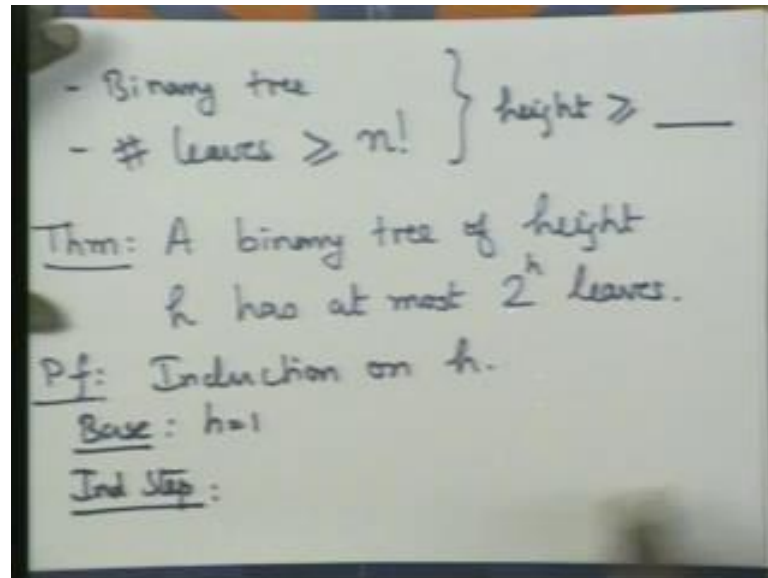 - Binary tree
- # leaves ≥ n! } height ≥ __
Thm: A binary tree of height
h has at most 2^h leaves.
Pf: Induction on h.
Base: h=1
Ind Step: